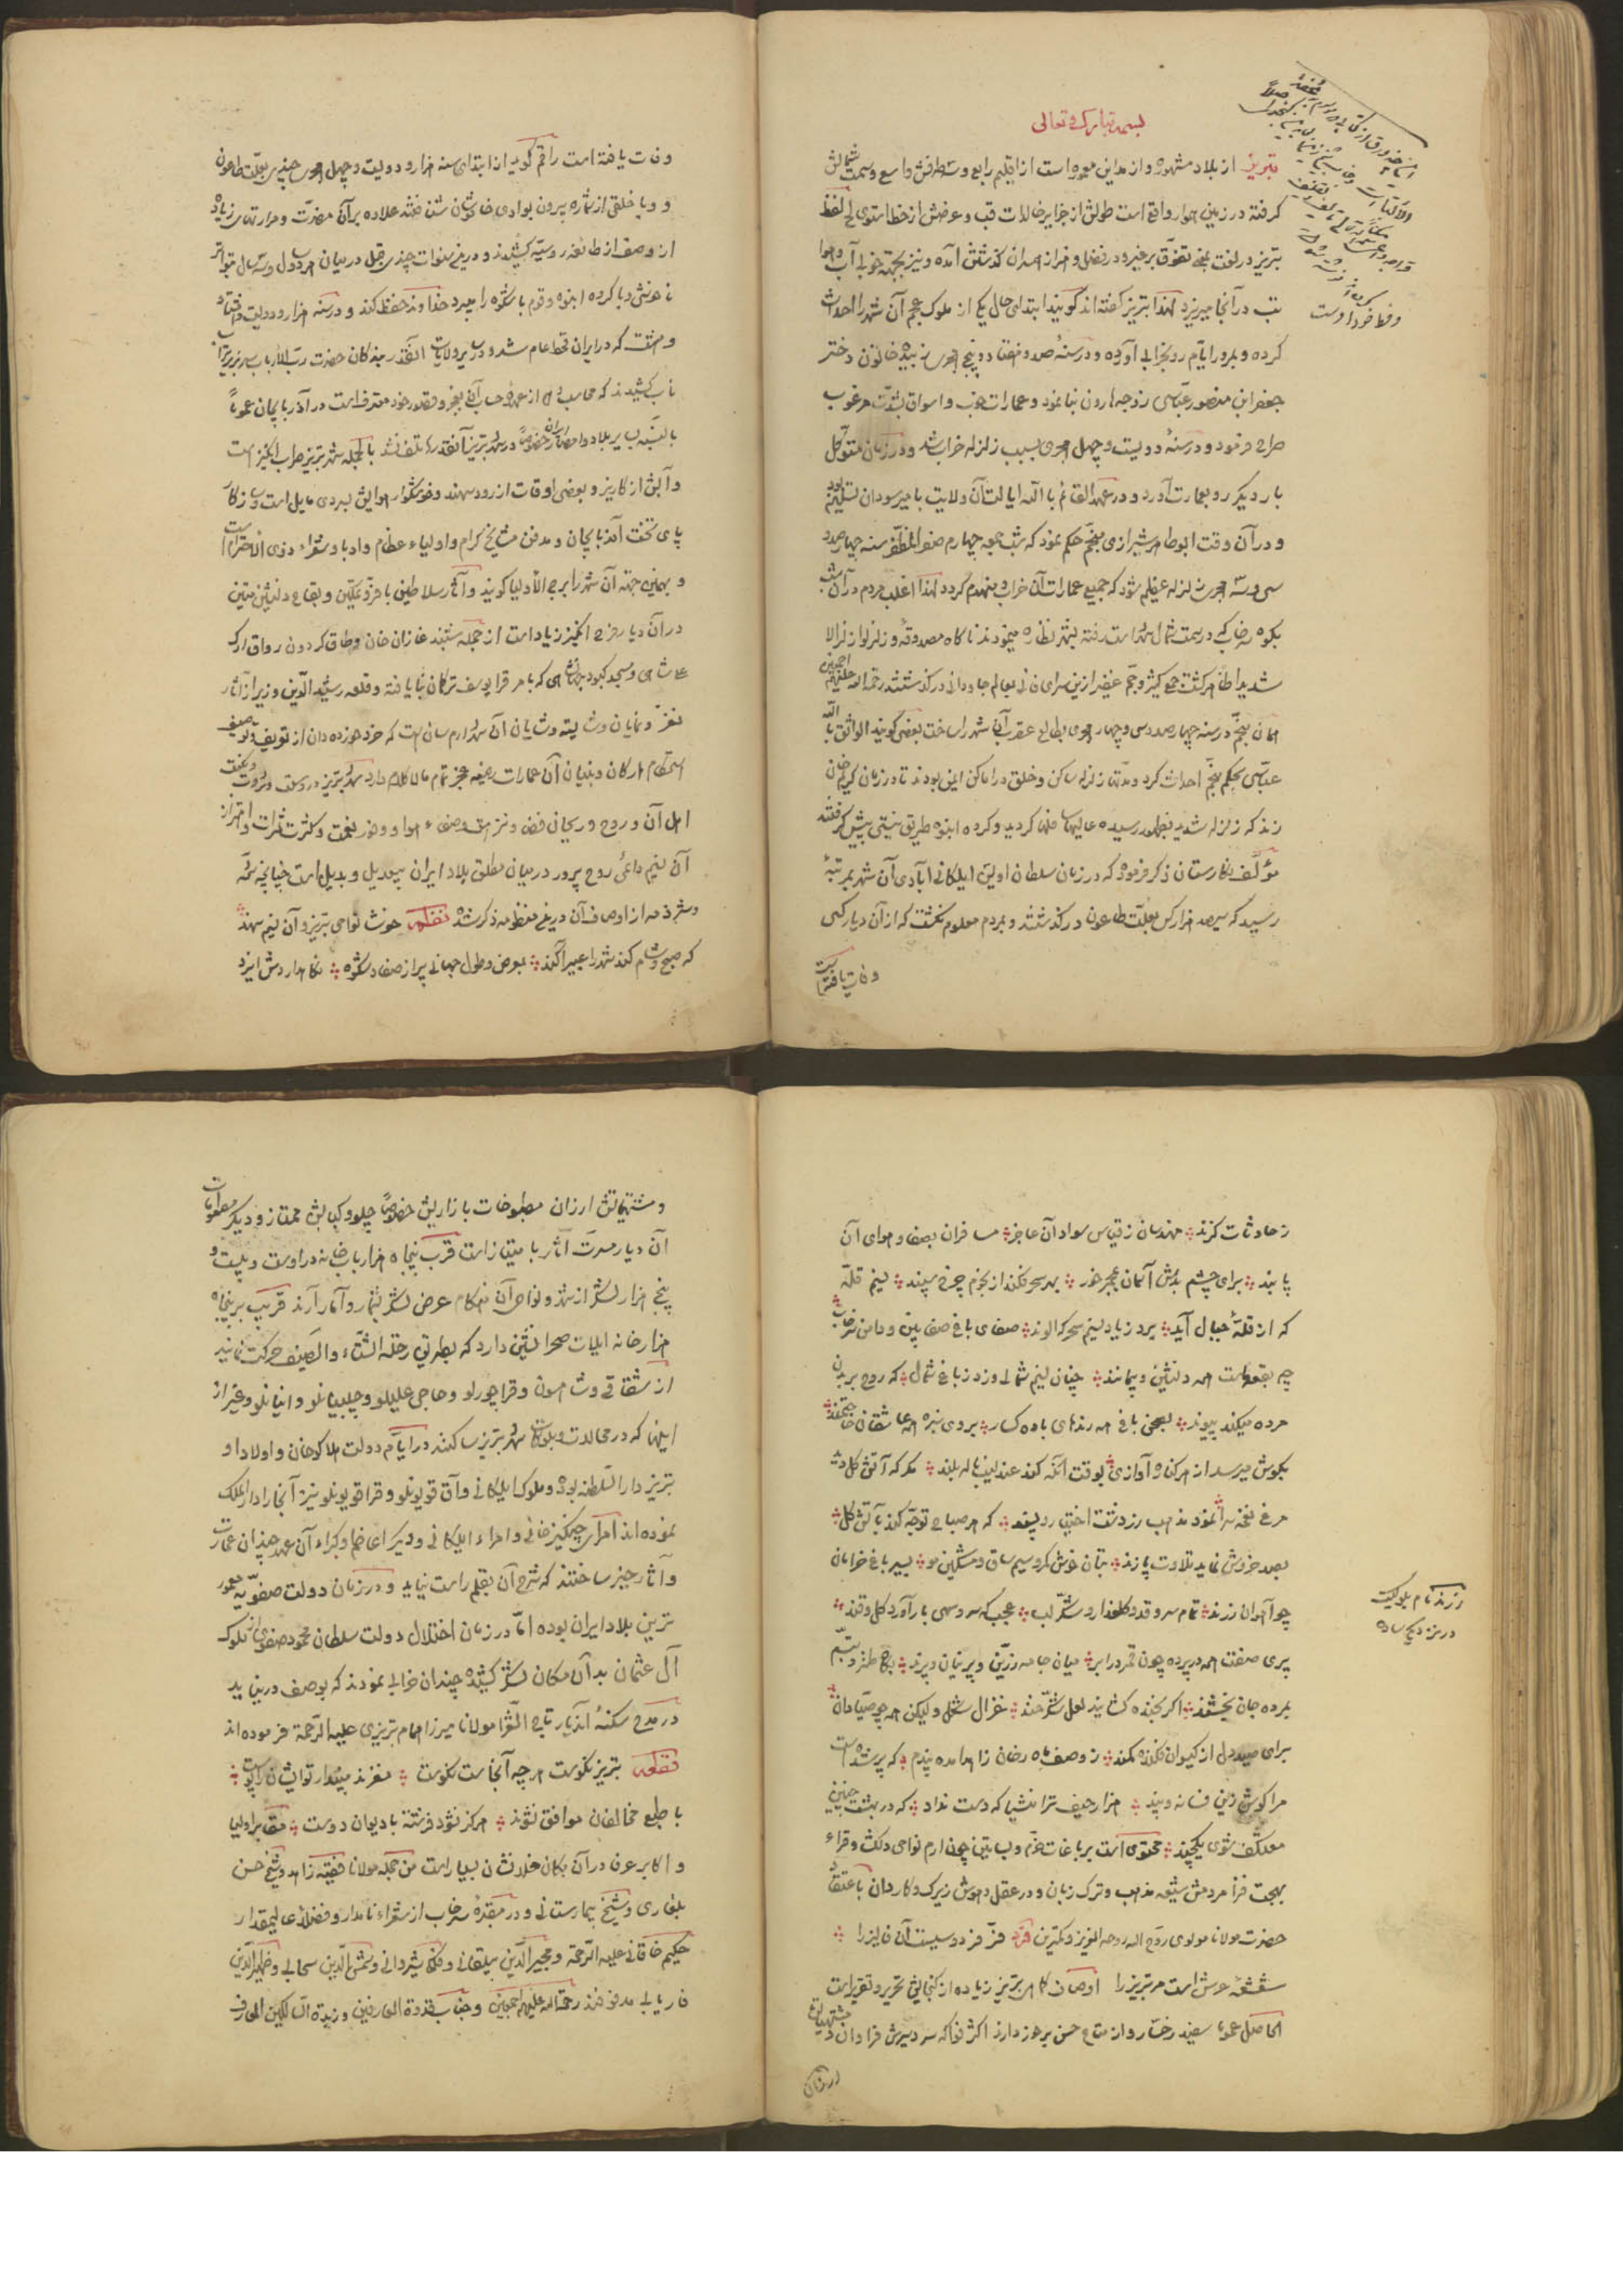 بسمه تبارک و تعالی
تبریز از بلاد مشهوره و از مداین معموره است از اقلیم رابع و سه طرفش واسع و سمت شمالش
گرفته در زمین هموار واقع است طولش از جزایر خالدات قب و عرضش از خط استوی لح لفظ
تبریز در لغت بمعنی تفوق بر غیر و در فضل و هنر از همسران گذشتن آمده و نیز بجهته خوبی آب و هوا
تب در آنجا میریزد لهذا تبریز گفته اند گویند ابتدای حال یکی از ملوک عجم آن شهر را احداث
کرده و بمرور ایام رو بخرابی آورده و در سنهٔ صد و هفتاد و پنج هجری زبیده خاتون دختر
جعفر ابن منصور عباسی زوجه هارون بنا نمود و عمارات خوب و اسواق بشدت مرغوب
طرح فرمود و در سنهٔ دویست و چهل هجری بسبب زلزله خراب شد و در زمان متوکل
بار دیگر رو بعمارت آورد و در عهد القائم بالله ایالت آن ولایت با میر سودان
و در آن وقت ابوطاهر شیرازی منجم حکم نمود که شب جمعه چهارم صفر المظفر سنه چهارصد
سی و سه هجری زلزله عظیم شود که جمیع عمارات آن خراب و منهدم گردد لهذا اغلب مردم در آن شب
بکوه سرخاب که در سمت شمال شهر است رفته بشهر نظاره مینمودند ناگاه مصدوقهٔ و زلزلوا زلزالا
شدیدا ظاهر گشت جمع کثیر و جم غفیر ازین سرای فانی بعالم جاودانی درگذشتند رحمة الله علیهم اجمعین
همان منجم در سنه چهارصد سی و چهار هجری بطالع عقرب آن شهر را ساخت بعضی گویند الواثق بالله
عباسی بحکم منجم احداث کرد و مدتها زلزله ساکن و خلق در اماکن ایمن بودند تا در زمان کریم خان
زند که زلزله شدید بظهور رسیده عالیها سافلها گردید و گروه انبوه طریق نیستی پیش گرفتند
مؤلف نگارستان ذکر فرموده که در زمان سلطان اویس ایلکانی آبادی آن شهر بمرتبهٔ
رسید که سیصد هزار کس بعلت طاعون درگذشتند و بمردم معلوم نگشت که از آن دیار کسی
وفات یافته است
وفات یافته است راقم گوید از ابتدای سنه هزار و دویست و چهل هجری چندی بعلت طاعون
و وبا خلقی از شماره بیرون بوادی خاموشان شتافتند علاوه بر آن مضرت و مرارتهای زیاده
از وصف از طائفه روسیه کشیدند و در سنوات چندی قبل در میان مرد سال متواتر
ناخوشی وبا گروه انبوه و قوم باشکوه را میبرد خداوند حفظ کند و در سنه هزار و دویست و هشتاد
و هشت که در ایران قحط عام شد و در سایر ولایات آنقدر بندگان حضرت رب الارباب
بالنسبه بسایر بلاد و امصار ایران خصوصاً در شهر تبریز آنقدرها تلف نشد بالجمله شهر تبریز طرب انگیز است
و آبش از کاریز و بعضی اوقات از رود سهند و خوشگوار هوایش بسردی مایل است
پای تخت آذربایجان و مدفن مشایخ کرام و اولیاء عظام و ادبا و شعراء ذوی الاحترام است
و بهمین جهته آن شهر را برج الاولیا گویند و آثار سلاطین با فر و تمکین و بقاع دلنشین متین
در آن دیار فرح انگیز زیاد است از جمله شنب غازان خان و طاق گردون رواق ارک
علیشاهی و مسجد کبود جهانشاهی که بامر قرا یوسف ترکمان بنا یافته و قلعه رشید الدین وزیر از آثار
نغز و نمایان و شایسته و شایان آن شهر ارم سان است که خرد خورده دان از تعریف و توصیف
استحکام ارکان و بنیان آن عمارات رفیعه عجز تمام مالاکلام دارد شهر تبریز در وسعت و ثروت و مکنت
اهل آن و روح و ریحانی فضا و نزاهت و صفاء هوا و وفور نعمت و کثرت ثمرات و اهتزاز
آن نسیم داعی روح پرور در میان مطلق بلاد ایران بیعدیل و بدیل است چنانچه شمهٔ
و شرذمه از اوصاف آن درین منظومه ذکر شده نظم خوشا نواحی تبریز و آن نسیم سهند
که صبح و شام کند شهر را عبیر آکند بعرض و طول جهانی پر از صفا و شکوه نگاهدارش ایزد
ز حادثات گزند مهندسان ز قیاس سواد آن عاجز مسافران بصفا و هوای آن
پابند برای چشم بدش آسمان مجمر خور بهر سحر فکند از نجوم چرخ سپند نسیم قلهٔ
که از قلهٔ جبال آید برد ز یاد نسیم سحرگه الوند صفای باغ صفا بین و دامن سرخاب
چه بقعه‌هاست همه دلنشین و بیمانند چنان نسیم شمالی وزد ز باغ شمال که روح بر بدن
مرده میکند پیوند بصحن باغ همه رندهای باده گسار بروی سبزه همه عاشقان
بگوش میرسد از هر کناره آوازی بوقت آنکه کند عندلیب ناله بلند مگر که آتش گل دید
مرغ نغمه سرا نمود مذهب رزدشت اختیار و پسند که هر صباح توجه کند بآتش گل
بصد خروش نماید تلاوت پازند بتان خوش کمر و سیم ساق و مشکین مو بسیر باغ خرامان
چو آهوان زرند تمام سرو قد و گلعذار و شکر لب عجب که سرو سهی بار آورد گل و قند
پری صفت همه در پرده چون قمر در ابر میان جامه زرین و پرنیان و پرند بگاه طنز و تبسم
بمرده جان بخشند اگر بخنده گشایند لعل شکرخند غزال شکل و لیکن همه چو صیادان
برای صید دل از گیسوان فکنده کمند ز وصف ماه رخان زاهدا مده پندم که پر شده است
مرا گوش زین فسانه و پند هزار حیف ترا نشیا که دست نداد که در بهشت چنین
معتکف شوی یکچند محتوی است بر باغات خرم و بساتین چون ارم نواحی دلکش و قراء
بهجت فزا مردمش شیعه مذهب و ترک زبان و در عقل و هوش زیرک و کاردان باعتقاد
حضرت مولانا مولوی روح الله روحه العزیز و کمترین فرد فر فردوسیست آن فالیز را
شعشعهٔ عرش است مر تبریز را اوصاف کامل تبریز زیاده از گنجایش تحریر و تقریر است
الحاصل عموماً سفید رخسار و از متاع حسن برخوردارند اکثر فواکه سردسیرش فراوان و مشتهیاتش
ارزان
زرند نام بلوکیست
در نزدیکی ساوه
و مشتهیاتش ارزان مطبوخات بازاریش خصوصاً چلو و کبابش ممتاز و دیگر مطعومات
آن دیار مسرت آثار با امتیاز است قرب پنجاه هزار باب خانه در اوست و بیست و
پنج هزار لشکر از شهر و نواحی آن هنگام عرض لشکر بشمار و آمار آرند قریب بر پنجاه
هزار خانه ایلیات صحرا نشین دارد که بطریق رحلة الشتاء و الصیف حرکت نمایند
از شقاقی و شاهسون و قراچورلو و حاجی علیلو و چلبیانلو و اینانلو و غیر از
اینها که در محالات و بلوکات شهر تبریز ساکنند در ایام دولت هلاکو خان و اولاد او
تبریز دار السلطنه بوده و ملوک ایلکانی و آق قویونلو و قراقویونلو نیز آنجا را دار الملک
نموده اند امرای چنگیز خانی و امراء ایلکانی و دیگر اعاظم و کبراء آن عهد چندان عمارت
و آثار خیر ساختند که شرح آن بقلم راست نیاید و در زمان دولت صفویه معمور
ترین بلاد ایران بوده اما در زمان اختلال دولت سلطان محمود صفوی یکی از ملوک
آل عثمان بدآن مکان لشکر کشیده چندان خرابی نمودند که بوصف در نیاید
در مدح سکنهٔ آندیار تاج الشعرا مولانا میرزا همام تبریزی علیه الرحمة فرموده اند
قطعه تبریز نکوست هر چه آنجاست نکوست مغزند مپندار تو ایشانرا پوست
با طبع مخالفان موافق نشوند هرگز نشود فرشته با دیوان دوست مقابر اولیا
و اکابر عرفا در آن مکان خلد نشان بسیار است من جمله مولانا فقیه زاهد و شیخ حسن
بلغاری و شیخ بیمارستانی و در مقبرهٔ سرخاب از شعراء نامدار و فضلای عالیمقدار
حکیم خاقانی علیه الرحمة و مجیر الدین بیلقانی و فلکی شیروانی و شمس الدین سجاسی و ظهیر الدین
فاریابی مدفونند رحمة الله علیهم اجمعین و جناب قدوة العارفین و زبدة السالکین العارف